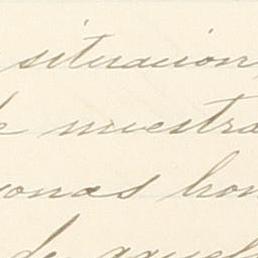 situacion,
de nuestra
onas hon
de aquel